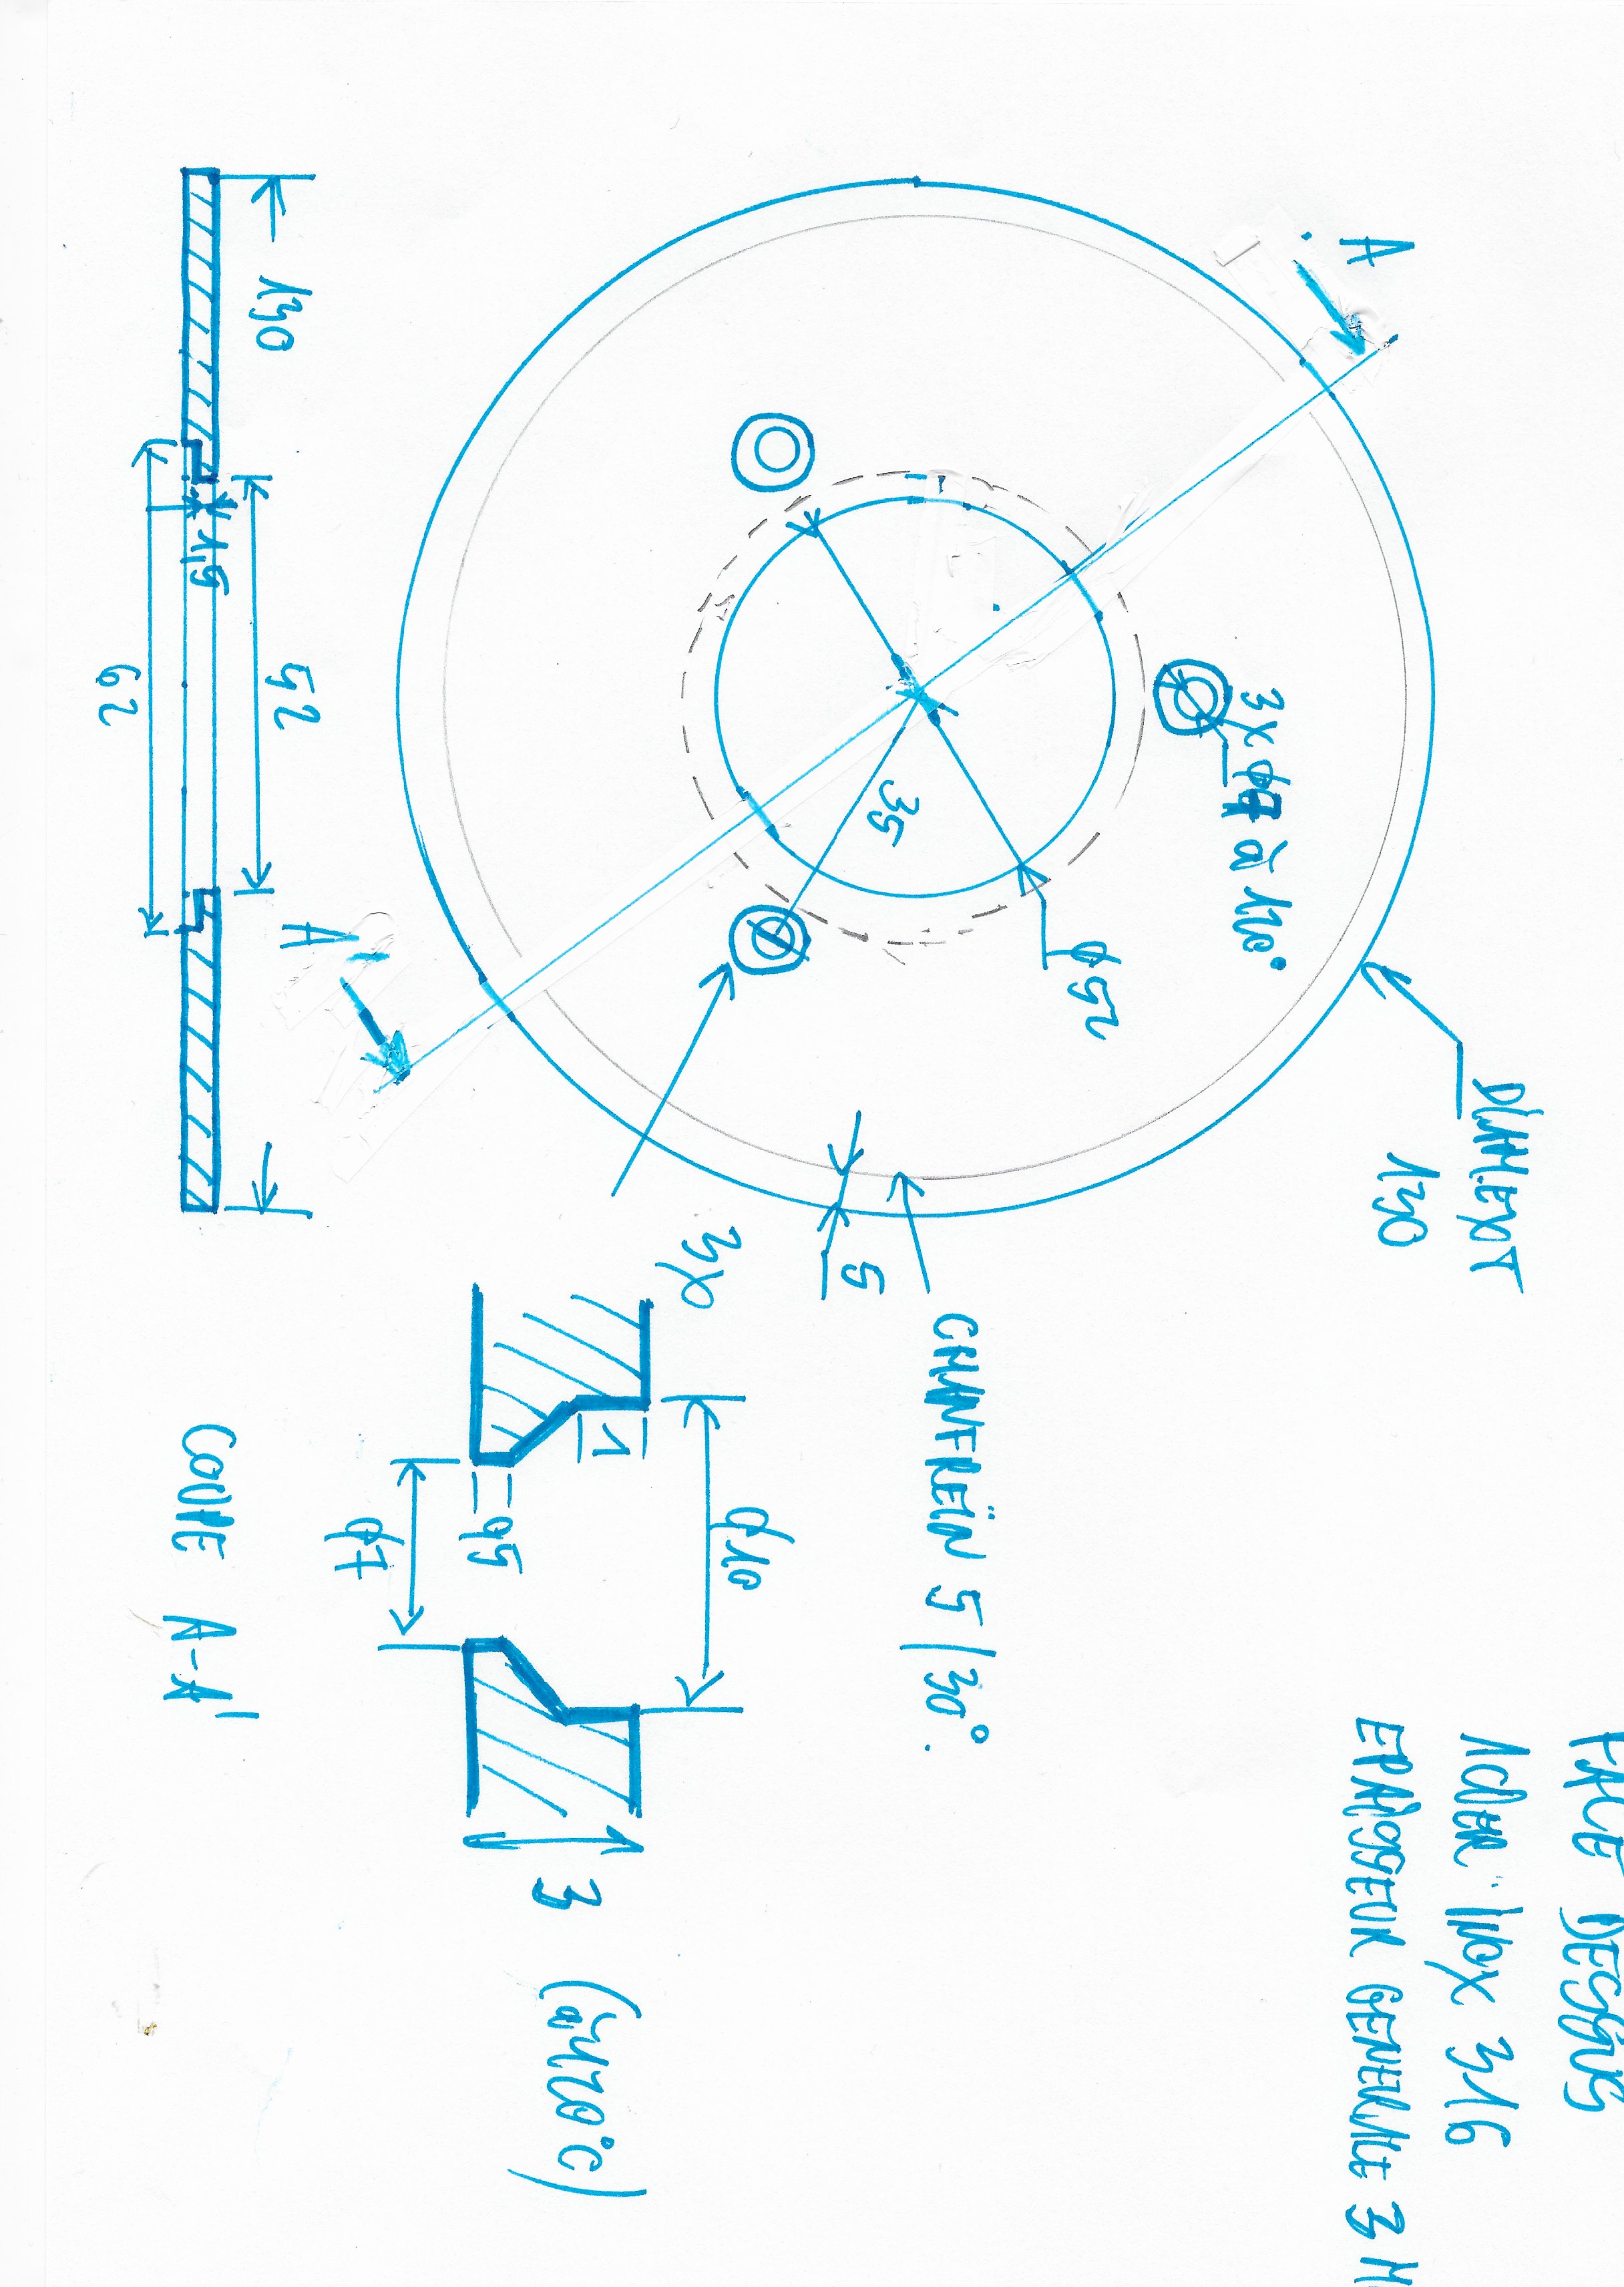 FACE DESSUS
Acier inox 316
EPAISSEUR GENERALE 3 M
DIAM.EXT
130
A
3x ϕ7 à 120°
ϕ52
35
5
CHANFREIN 5/30°.
A'
3x
ϕ10
1
0,5
ϕ7
3 (à 20°C)
130
52
1,5
62
COUPE A-A'